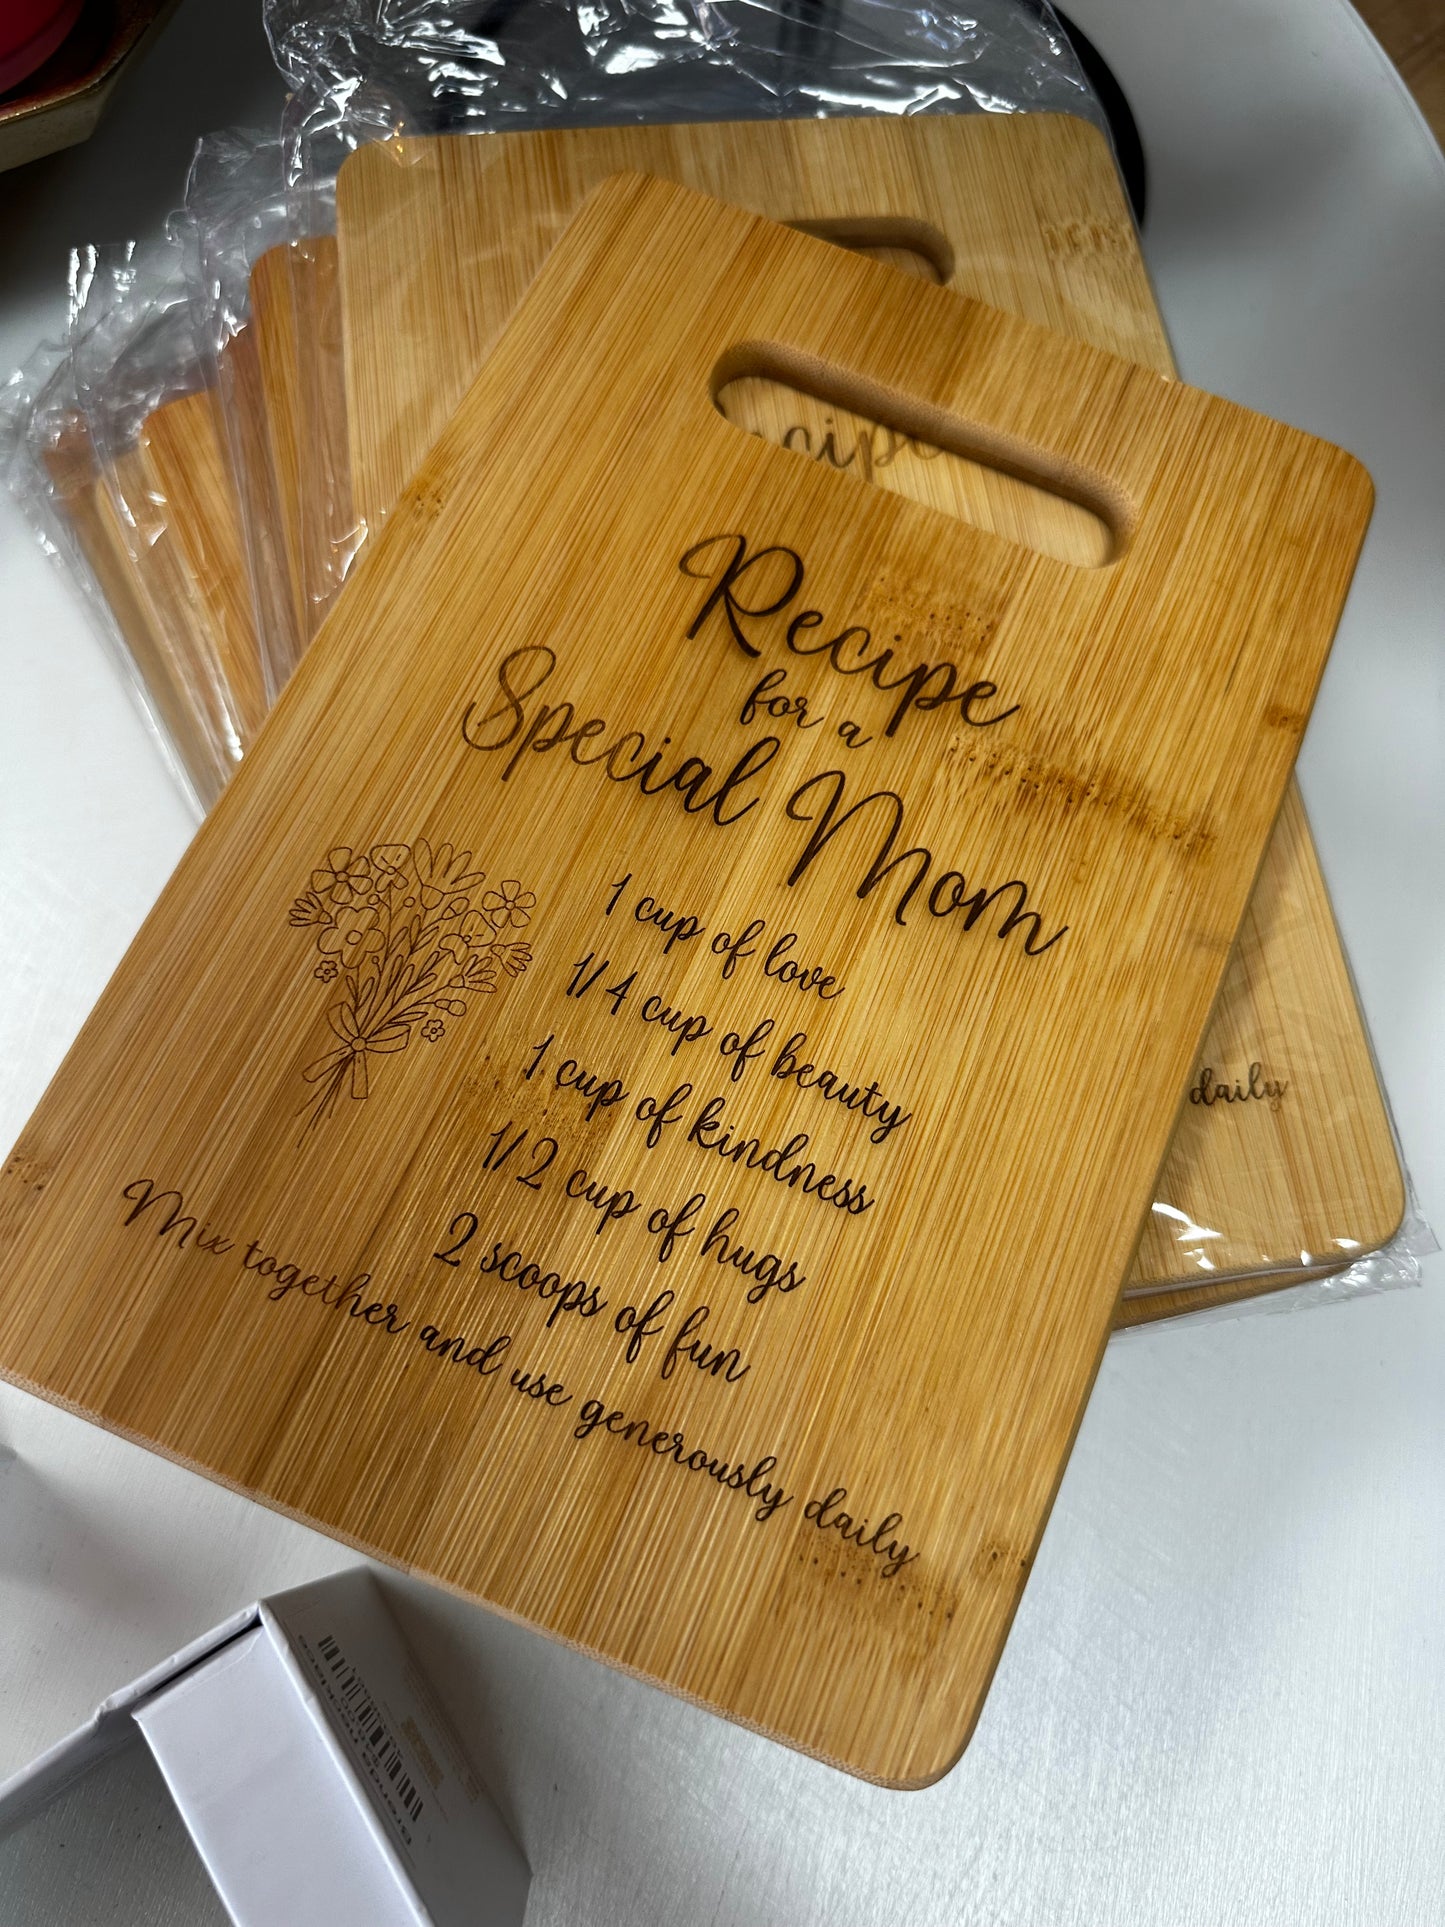 Recipe
Recipe
for a
Special Mom
1 cup of love
1/4 cup of beauty
1 cup of kindness
1/2 cup of hugs
2 scoops of fun
Mix together and use generously daily
daily